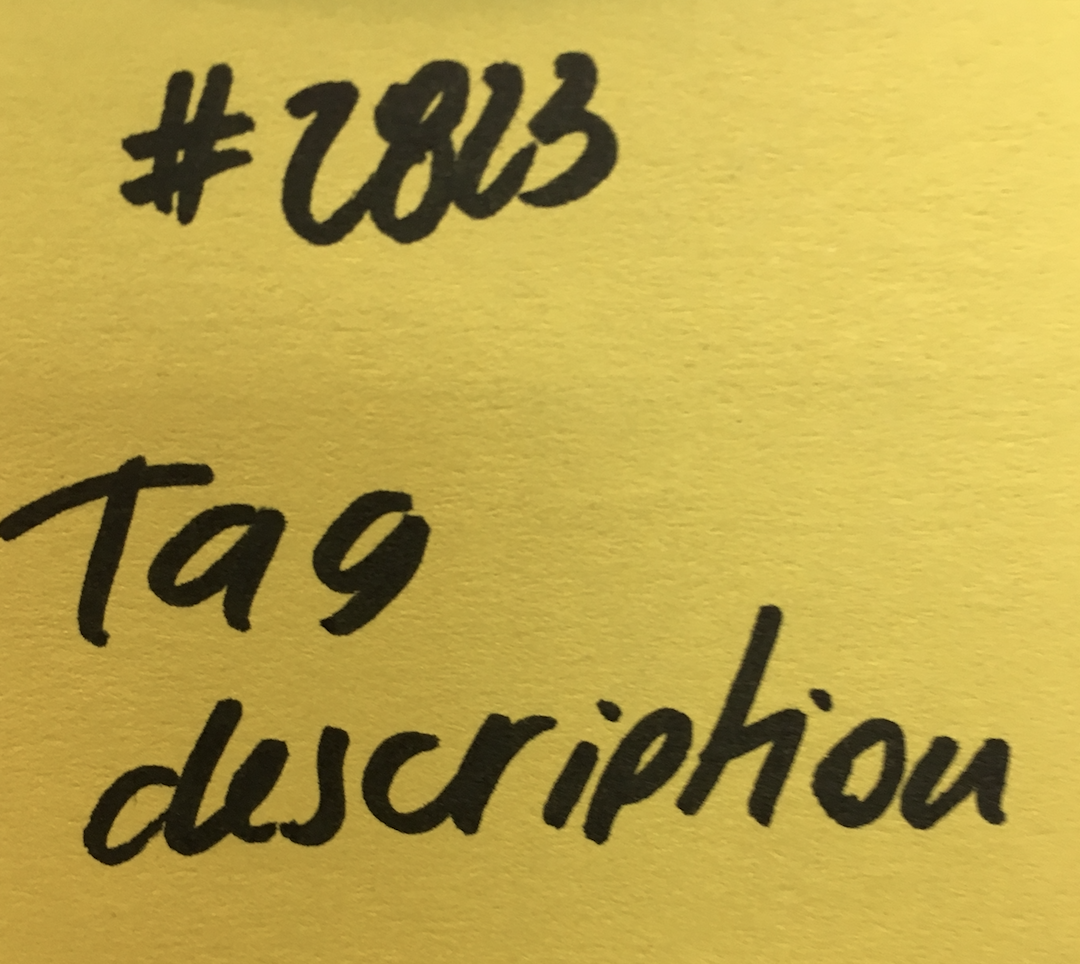 #2823
Tag
description